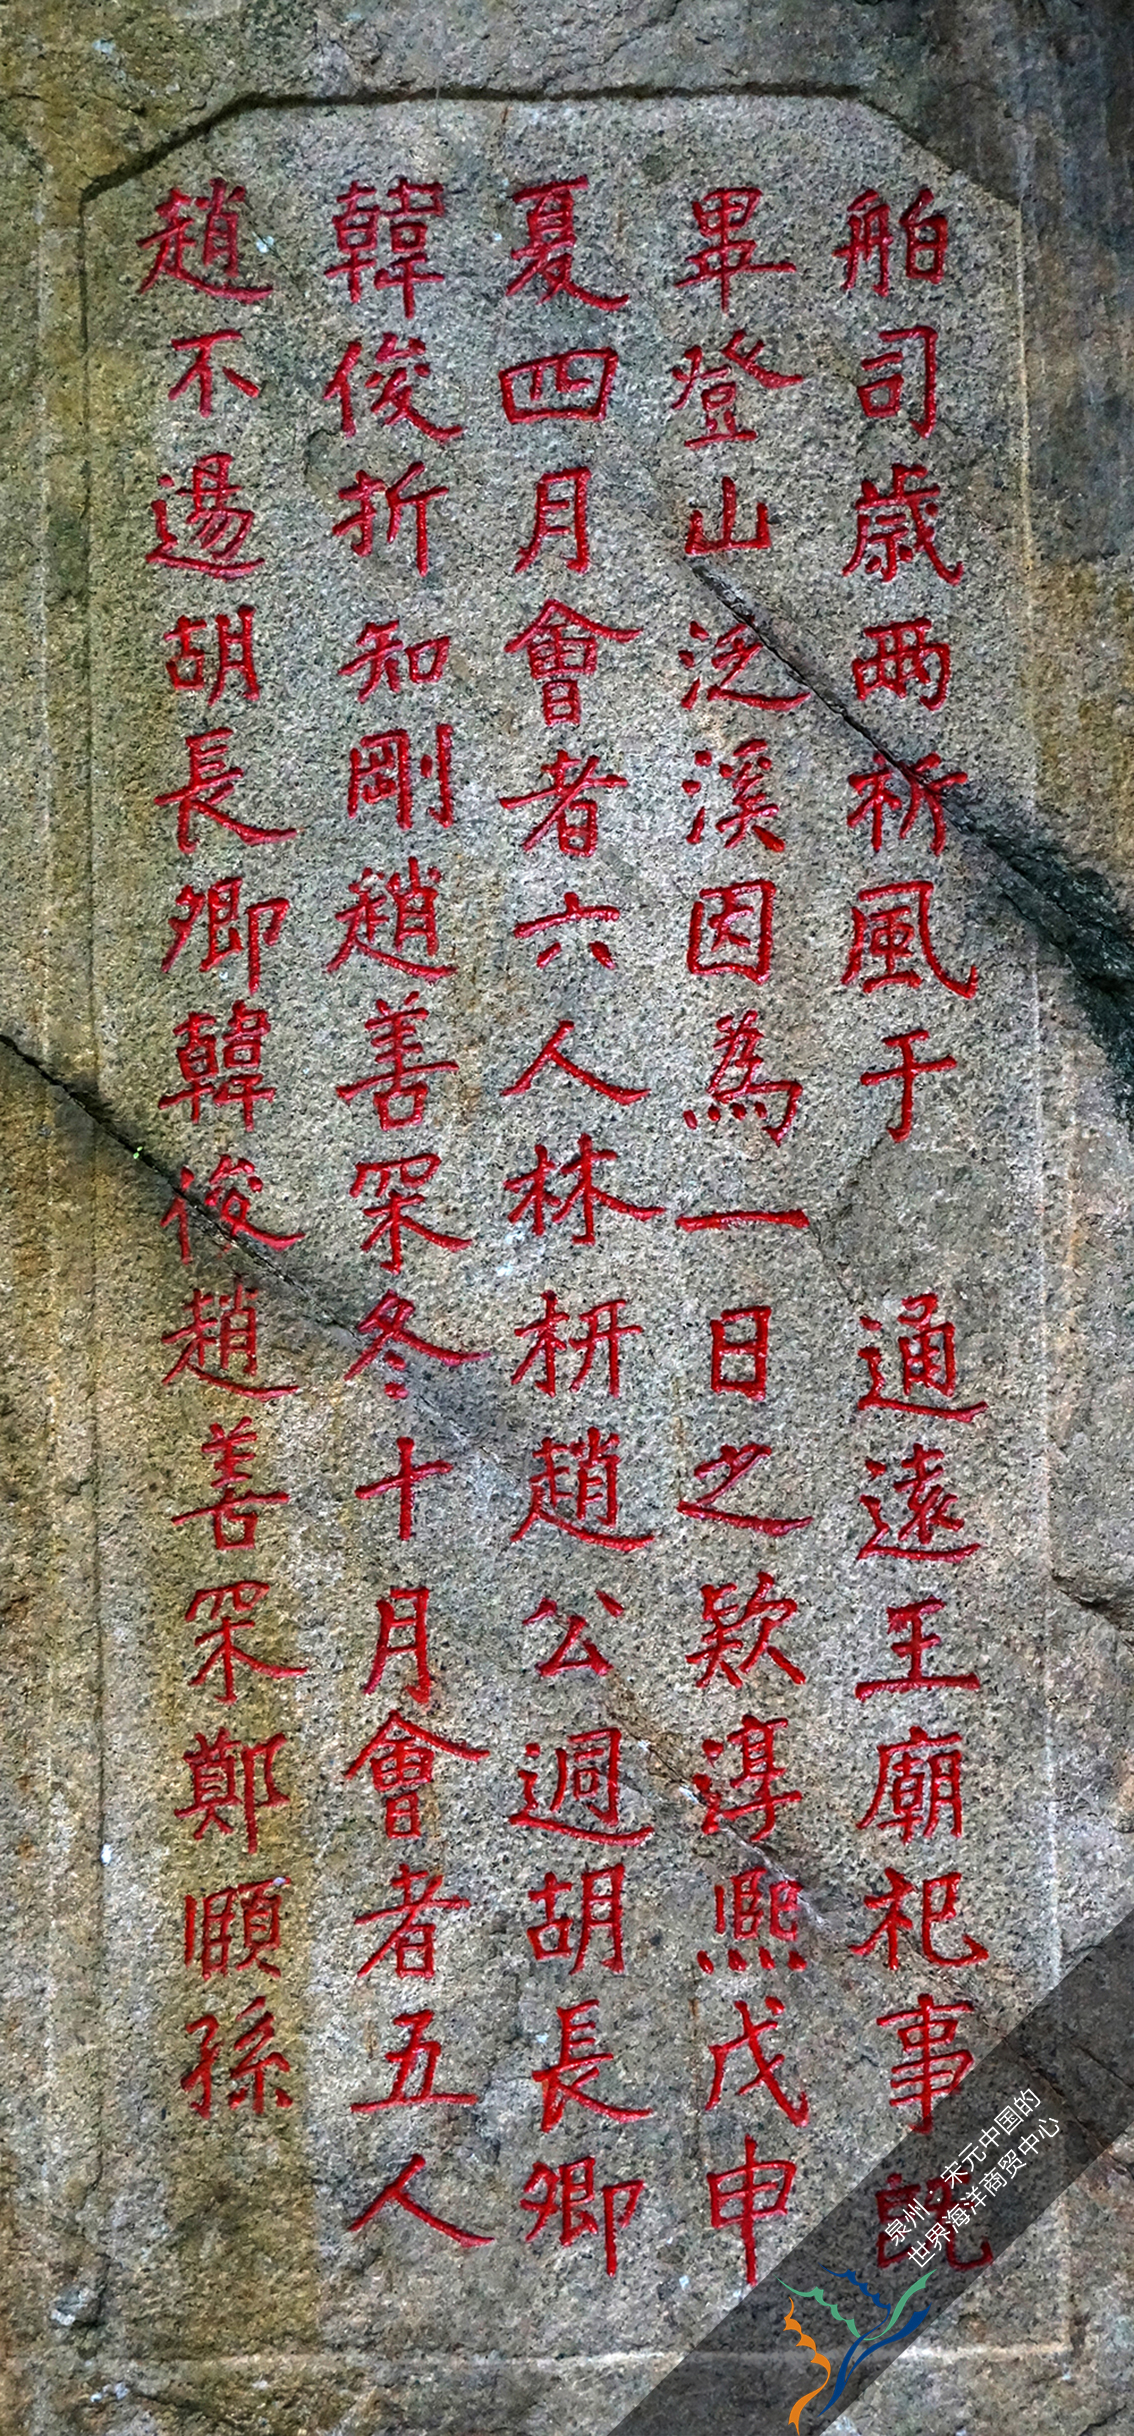 舶司歲兩祈風于 通遠王廟祀事既
畢登山泛溪因為一日之款淳熙戊申
夏四月會者六人林枅趙公迵胡長卿
韓俊折知剛趙善罙冬十月會者五人
趙不逷胡長卿韓俊趙善罙鄭頤孫
泉州:宋元中国的
世界海洋商贸中心